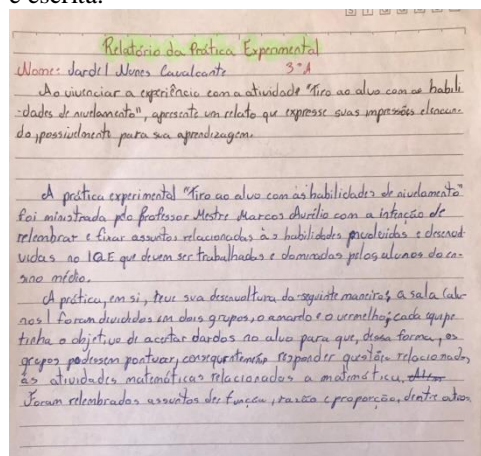 e escrita.
Relatório da Prática Experimental
Nome: Jardel Nunes Cavalcante 3º A
Ao vivenciar a experiência com a atividade "Tiro ao alvo com as habili
-dades de nivelamento", apresente um relato que expresse suas impressões elencan-
do, possivelmente para sua aprendizagem.
A prática experimental "Tiro ao alvo com as habilidades de nivelamento"
foi ministrada pelo Professor Mestre Marcos Aurélio com a intenção de
relembrar e fixar assuntos relacionados às habilidades e
no que devem ser trabalhados e dominados pelos alunos do en-
sino médio.
A prática, em si, teve sua desenvoltura da seguinte maneira, a sala (alu-
nos) foram divididos em dois grupos, o amarelo e o vermelho, cada equipe
tinha o objetivo de acertar dardos no alvo para que, dessa forma, os
grupos podessem pontuar, consequentemente responder questões relacionadas
às atividades matemáticas relacionados a matemática.
Foram relembrados assuntos de: função, razão e proporção, dentre outros